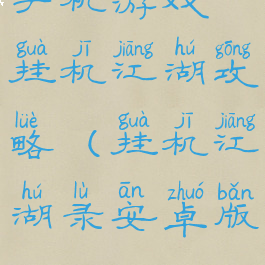 手机游戏
guà jī jiāng hú gōng
挂机江湖攻
lüè guà jī jiāng
略（挂机江
hú lù ān zhuó bǎn
湖录安卓版